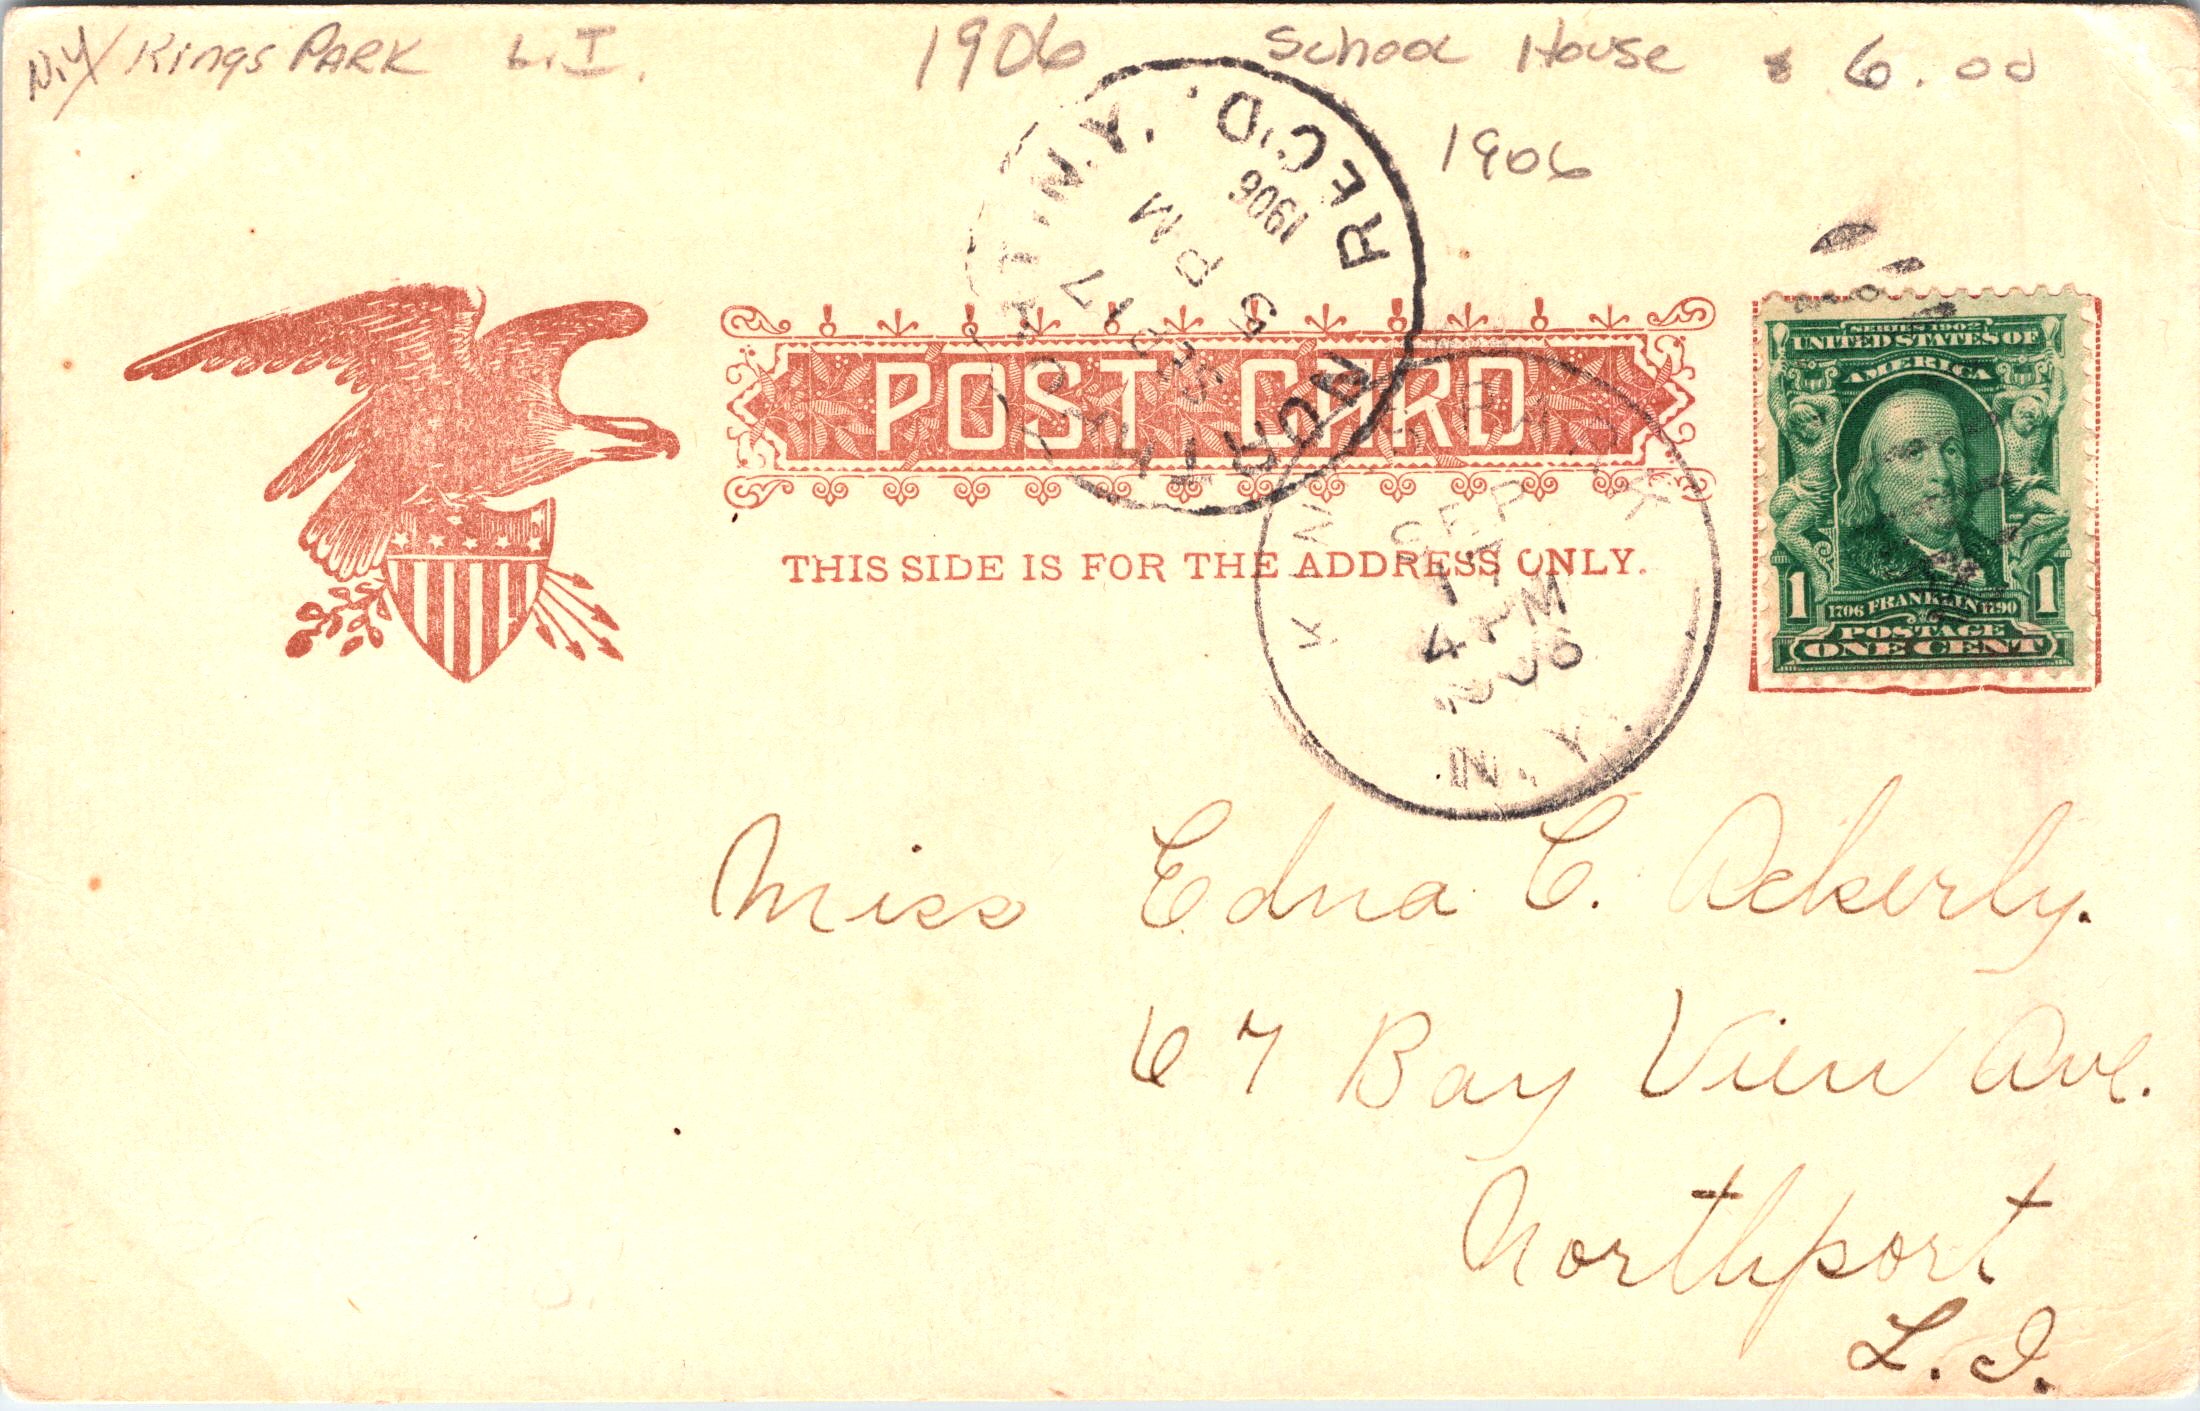 N.Y/ Kings PARK L.I. 1906 School House $ 6.00
1906
NORTHPORT, N.Y. REC'D.
SEP 17
5 PM
1906
POST CARD
THIS SIDE IS FOR THE ADDRESS ONLY.
KINGS PARK
SEP
17
4 PM
1906
N.Y.
SERIES 1902
UNITED STATES OF
AMERICA
1 1706 FRANKLIN 1790 1
POSTAGE
ONE CENT
Miss Edna C. Ackerly.
67 Bay View Ave.
Northport
L.I.